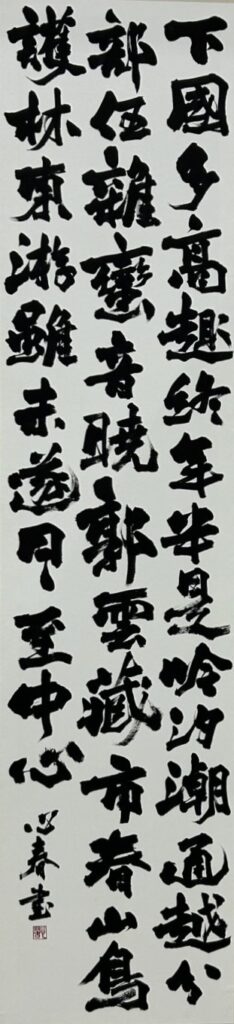 下國多高趣終年半是吟汐潮通越分
部伍雜蠻音曉郭雲藏市春山鳥
護林東游雖未遂日々至中心
心春書